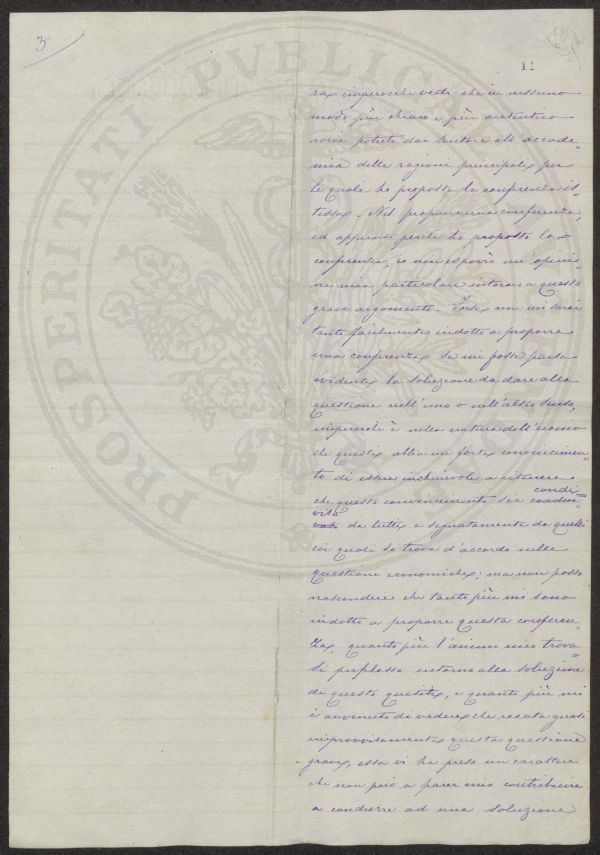 3
11
PROSPERITATI PVBLICAE
ra imperocchè vedo che in nessuno
modo più chiaro e più autentico
potete dar contezza all'accade=
mia delle ragioni principali per
le quale ho proposta la conferenza is=
tessa. Nel proporre una conferenza,
ed appunto perchè ho proposta la
conferenza, io non esporrò un'opinio=
ne mia particolare intorno a questo
grave argomento. Forse non mi sarei
tanto facilmente indotto a proporre
una conferenza se mi fosse parsa
evidente la soluzione da dare alla
questione nell'uno o nell'altro senso,
imperocchè è nella natura dell'uomo
che questi abbia un forte convincimen=
to di essere inchinevole a ritenere
che questo convincimento sia condi=
viso da tutti e segnatamente da quelli
coi quali si trova d'accordo nelle
questione economiche; ma non posso
nascondere che tanto più mi sono
indotto a proporre questa conferen=
za, quanto più l'animo mio trova=
si perplesso intorno alla soluzione
di questo quesito, e quanto più mi
è avvenuto di vedere che recata quasi
improvvisamente questa questione
grave, essa vi ha preso un carattere
che non può a parer mio contribuire
a condurre ad una soluzione